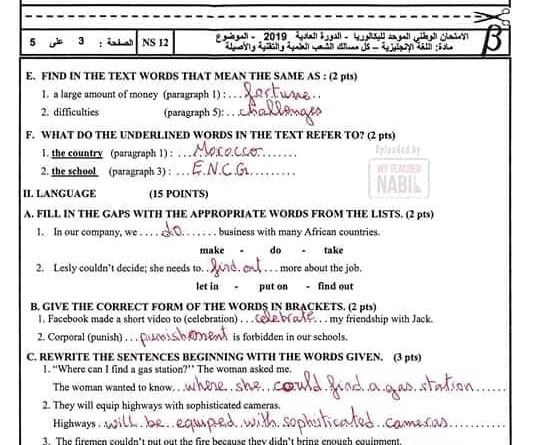 الامتحان الوطني الموحد للبكالوريا - الدورة العادية 2019 - الموضوع
مادة: اللغة الإنجليزية - كل مسالك الشعب العلمية والتقنية والأصيلة
β NS 12 الصفحة : 3 على 5
E. FIND IN THE TEXT WORDS THAT MEAN THE SAME AS : (2 pts)
1. a large amount of money (paragraph 1) : ...fortune...
2. difficulties (paragraph 5): ...challenges
F. WHAT DO THE UNDERLINED WORDS IN THE TEXT REFER TO? (2 pts)
1. the country (paragraph 1) : ...Morocco.......
2. the school (paragraph 3) : ...E.N.C.G.........
Uploaded by
MY TEACHER
NABIL
II. LANGUAGE (15 POINTS)
A. FILL IN THE GAPS WITH THE APPROPRIATE WORDS FROM THE LISTS. (2 pts)
1. In our company, we ....do....... business with many African countries.
make - do - take
2. Lesly couldn't decide; she needs to..find.out.... more about the job.
let in - put on - find out
B. GIVE THE CORRECT FORM OF THE WORDS IN BRACKETS. (2 pts)
1. Facebook made a short video to (celebration) ...celebrate... my friendship with Jack.
2. Corporal (punish) ...punishement is forbidden in our schools.
C. REWRITE THE SENTENCES BEGINNING WITH THE WORDS GIVEN. (3 pts)
1. "Where can I find a gas station?" The woman asked me.
The woman wanted to know...where.she..could.find.a.gas.station......
2. They will equip highways with sophisticated cameras.
Highways .will.be..equiped.with.sophisticated.cameras.........
3. The firemen couldn't put out the fire because they didn't bring enough equipment.